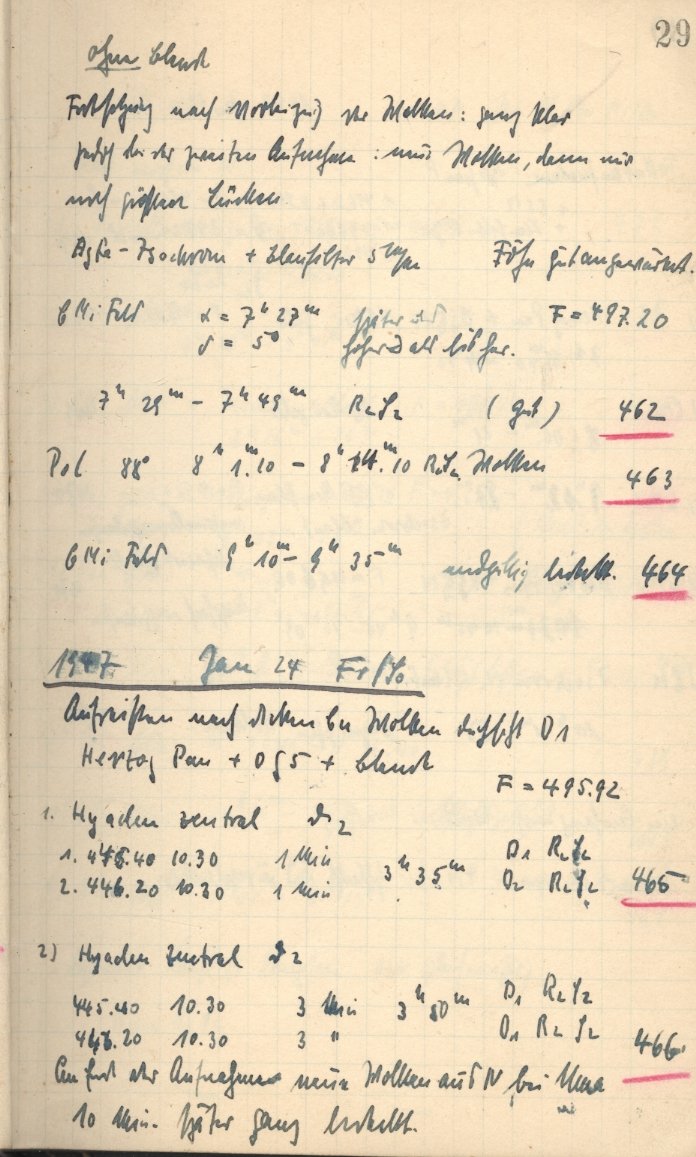 29
ohne Blende
Fortsetzung nach Vorbeizug der Wolken: ganz klar
jedoch bei der zweiten Aufnahme: neue Wolken, dann nur
noch größere Lücken
Agfa-Isochrom + Blaufilter
Föhn gut angewärmt.
6 Mi Feld α = 7h 27m später und F = 497.20
δ = 5° höher als bisher.
7h 29m - 7h 49m R2 J2 (gut) 462
Pol 88° 8h 1m.10 - 8h 14m.10 R2 J2 Wolken 463
6 Mi Feld 9h 10m - 9h 35m endgültig bedeckt. 464
1947 Jan 24 Fr/Sa
Aufreißen nach dicken Wolken D1
Herzog Pan + OG5 + Blende
F = 495.92
1. Hyaden zentral ϑ2
1. 445.40 10.30 1 Min 3h 35m D1 R2 J2
2. 446.20 10.30 1 Min D2 R2 J2 465
2) Hyaden zentral ϑ2
445.40 10.30 3 Min 3h 50m D1 R2 J2
446.20 10.30 3 " D1 R2 J2 466
Am End der Aufnahme neue Wolken aus N bei Uma
10 Min. später ganz bedeckt.